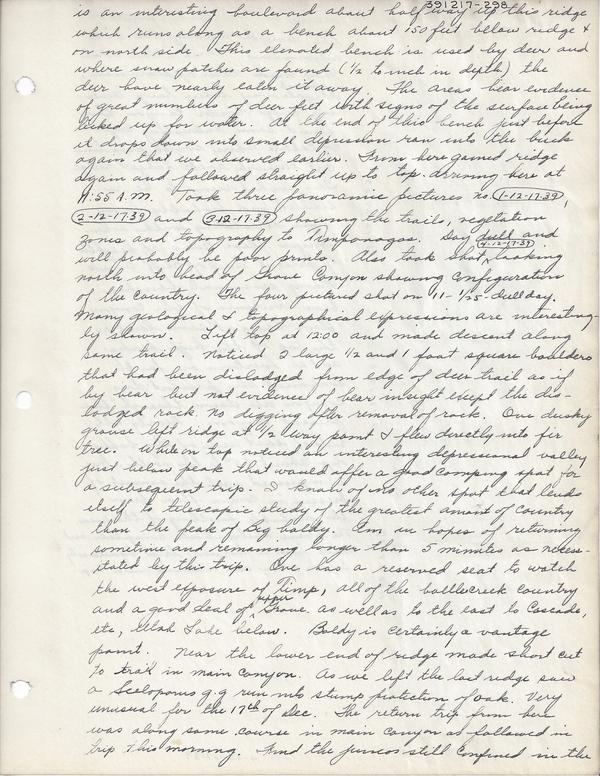 391217-298
is an interesting boulevard about half way up this ridge
which runs along as a bench about 150 feet below ridge &
on north side. This elevated bench is used by deer and
where snow patches are found (1/2 to inch in depth) the
deer have nearly eaten it away. The areas bear evidence
of great numbers of deer feet with signs of the surface being
licked up for water. At the end of this bench just before
it drops down into small depression ran into the buck
again that we observed earlier. From here gained ridge
again and followed straight up to top arriving here at
11:55 A.M. Took three panoramic pictures no. 1-12-17-39,
2-12-17-39 and 3-12-17-39 showing the trails, vegetation
zones and topography to Timpanogos. Day dull and
4-12-17-39
will probably be poor prints. Also took shot looking
north into head of Grove Canyon showing configuration
of the country. The four pictures shot on 11 - 1/25 - dull day.
Many geological & topographical expressions are interesting-
ly shown. Left top at 12:00 and made descent along
same trail. Noticed 2 large 1/2 and 1 foot square boulders
that had been dislodged from edge of deer trail as if
by bear but not evidence of bear in sight except the dis-
lodged rock. No digging after removal of rock. One dusky
grouse left ridge at 1/2 way point & flew directly into fir
tree. While on top noticed an interesting depressional valley
just below peak that would offer a good camping spot for
a subsequent trip. I know of no other spot that lends
itself to telescopic study of the greatest amount of country
than the peak of Big baldy. Am in hopes of returning
sometime and remaining longer than 5 minutes as necess-
itated by this trip. One has a reserved seat to watch
the west exposure of Timp, all of the battlecreek country
and a good deal of upper Grove, as well as to the east to Cascade,
etc, Utah Lake below. Baldy is certainly a vantage
point. Near the lower end of ridge made short cut
to trail in main canyon. As we left the last ridge saw
a Sceloporus g.g run into stump protection of oak. Very
unusual for the 17th of Dec. The return trip from here
was along same course in main canyon as followed in
trip this morning. Find the juncos still confined in the